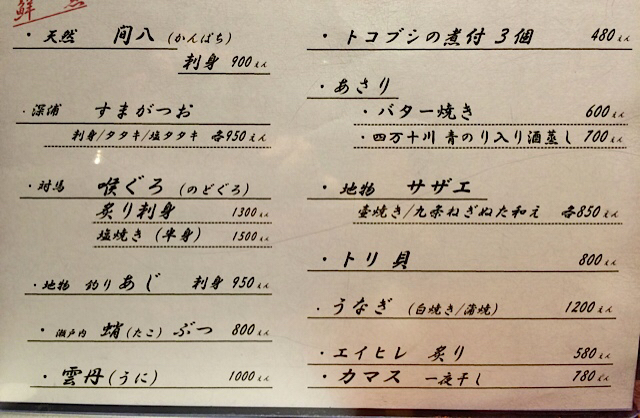 鮮
・天然 間八 (かんぱち)
刺身 900えん
・深浦 すまがつお
刺身/タタキ/塩タタキ 各950えん
・対馬 喉ぐろ (のどぐろ)
炙り刺身 1300えん
塩焼き (半身) 1500えん
・地物 釣りあじ 刺身 950えん
・瀬戸内 蛸(たこ)ぶつ 800えん
・雲丹(うに) 1000えん
・トコブシの煮付 3個 480えん
・あさり
・バター焼き 600えん
・四万十川 青のり入り酒蒸し 700えん
・地物 サザエ
壷焼き/九条ねぎぬた和え 各850えん
・トリ貝 800えん
・うなぎ (白焼き/蒲焼) 1200えん
・エイヒレ 炙り 580えん
・カマス 一夜干し 780えん